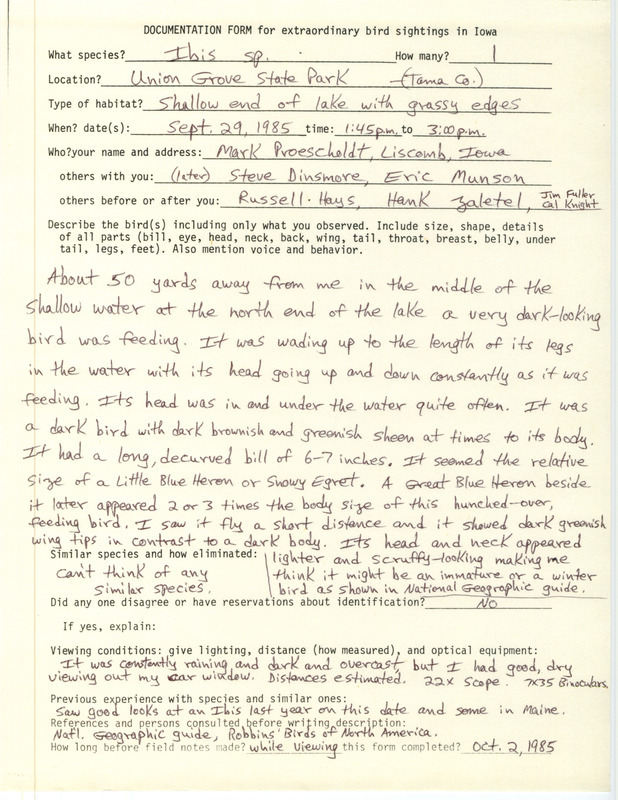 DOCUMENTATION FORM for extraordinary bird sightings in Iowa
What species? Ibis sp. How many? 1
Location? Union Grove State Park (Tama Co.)
Type of habitat? Shallow end of lake with grassy edges
When? date(s): Sept. 29, 1985 time: 1:45 p.m. to 3:00 p.m.
Who?your name and address: Mark Proescholdt, Liscomb, Iowa
others with you: (later) Steve Dinsmore, Eric Munson
others before or after you: Russell Hays, Hank Zaletel, Jim Fuller
Cal Knight
Describe the bird(s) including only what you observed. Include size, shape, details
of all parts (bill, eye, head, neck, back, wing, tail, throat, breast, belly, under
tail, legs, feet). Also mention voice and behavior.
About 50 yards away from me in the middle of the
shallow water at the north end of the lake a very dark-looking
bird was feeding. It was wading up to the length of its legs
in the water with its head going up and down constantly as it was
feeding. Its head was in and under the water quite often. It was
a dark bird with dark brownish and greenish sheen at times to its body.
It had a long, decurved bill of 6-7 inches. It seemed the relative
size of a Little Blue Heron or Snowy Egret. A Great Blue Heron beside
it later appeared 2 or 3 times the body size of this hunched-over,
feeding bird. I saw it fly a short distance and it showed dark greenish
wing tips in contrast to a dark body. Its head and neck appeared
lighter and scruffy-looking making me
think it might be an immature or a winter
bird as shown in National Geographic guide.
Similar species and how eliminated:
can't think of any
similar species.
Did any one disagree or have reservations about identification? No
If yes, explain:
Viewing conditions: give lighting, distance (how measured), and optical equipment:
It was constantly raining and dark and overcast, but I had good, dry
viewing out my car window. Distances estimated. 22x scope. 7x35 Binoculars.
Previous experience with species and similar ones:
Saw good looks at an Ibis last year on this date and some in Maine.
References and persons consulted before writing description:
Natl. Geographic guide, Robbins' Birds of North America.
How long before field notes made? while viewing this form completed? Oct. 2, 1985